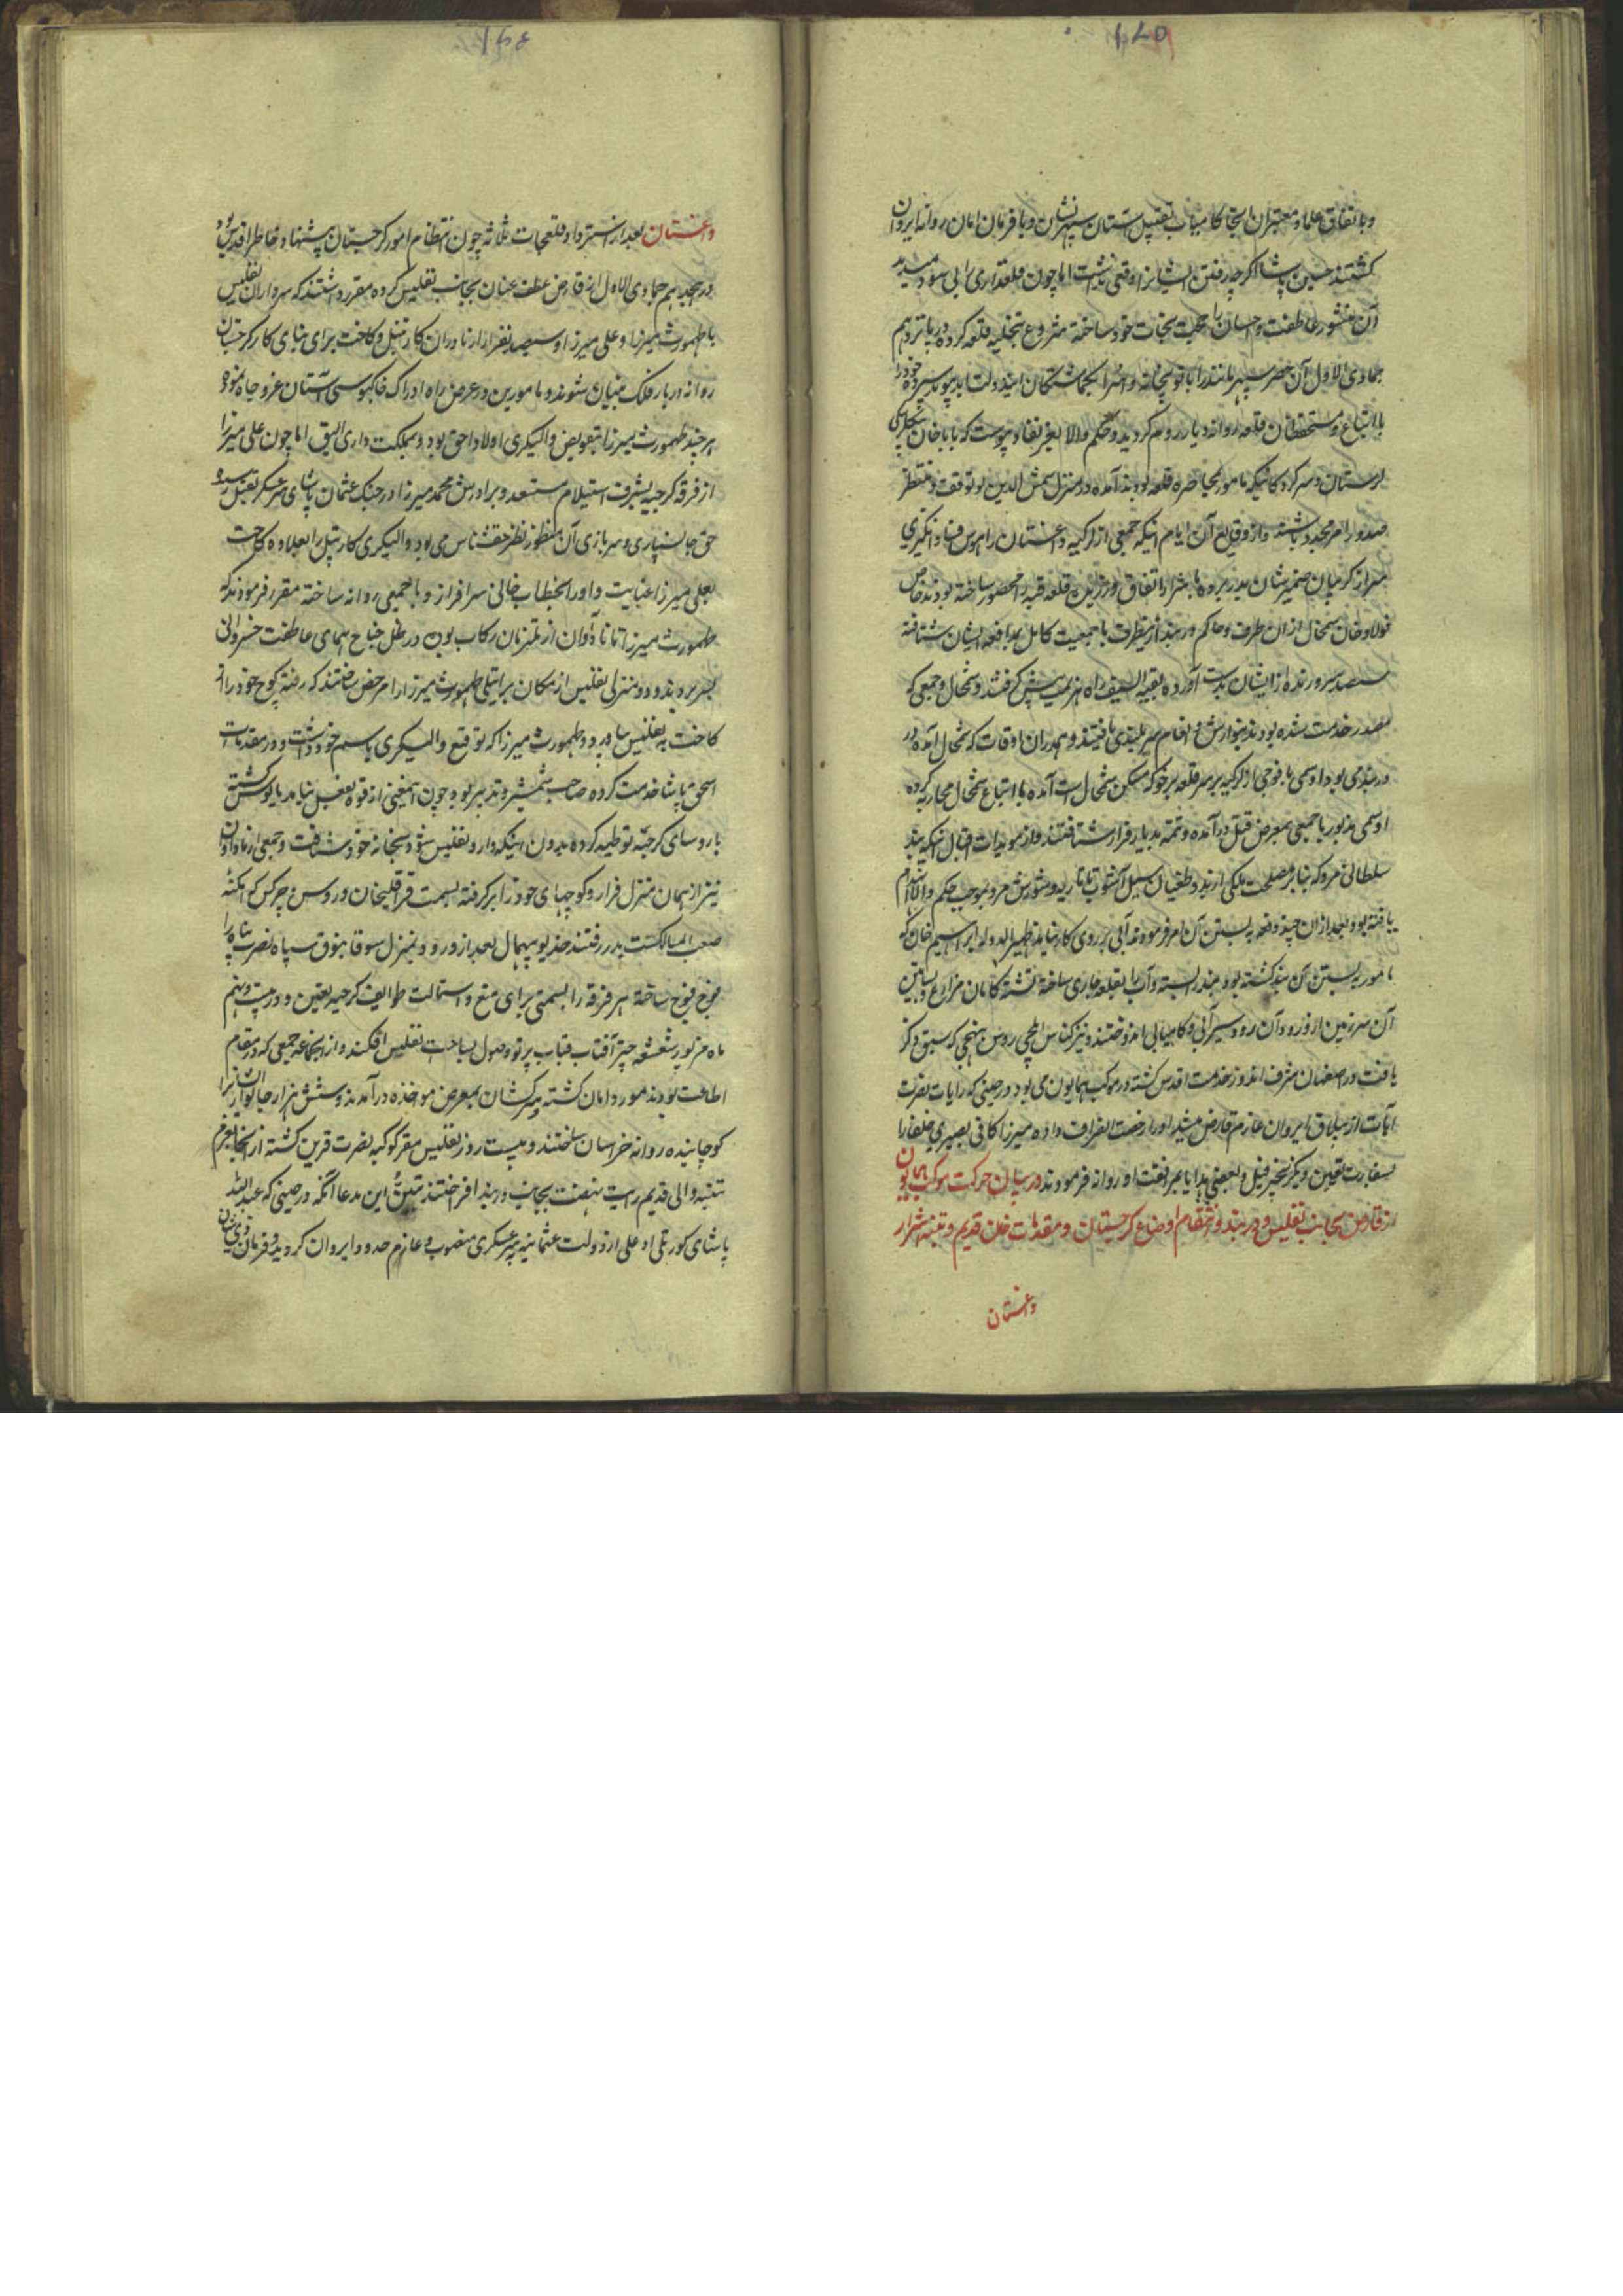 وباتفاق علما و معتبران انجا کامیاب تقبیل آستان سپهرنشان و با فرمان امان روانه ایروان
کشتند حسین پاشا اکرچه رفتن ایشانرا وقعی نداشت اما چون قلعه‌داری را بی سود میدید
آن منشور عاطفت و احسان را حجت نجات خود ساخته شروع بتخلیه قلعه کرده در پانزدهم
جمادی الاول آن حصر سپهر مانند را با توپخانه و اسرا بکماشتکان ایندولت ابد پیوند سپرده خود
با اتباع و مستحفظان قلعه روانه دیار روم کردید و حکم والا بعز نفاذ پیوست که باباخان بیکلربیکی
لرستان و سرکردکانیکه مامور بمحاصره قلعه بودند آمده در منزل شمس الدین لو توقف و منتظر
صدور امر مجدد باشند و از وقایع آن ایام اینکه جمعی از لزکیه داغستان را هوس فساد انکیزی
سر از کریبان ضمیرشان بدر برده با اشرار اتفاق ورزیده قلعه قبه را محصور ساخته بودند خاص
فولادخان شمخال از آن طرف و حاکم دربند از اینطرف با جمعیت کامل بمدافعه ایشان شتافته
سیصد سر و زنده از ایشان بدست آورده بقیة السیف راه هزیمت پیش کرفتند و شمخال و جمعی که
مصدر خدمت شده بودند بنوازش و انعام سربلندی یافتند و هم در آن اوقات که شمخال آمده در
دربند می بود اوسمی با فوجی از لزکیه بر سر قلعه برخو که مسکن شمخال است آمده با اتباع شمخال محاربه کرده
اوسمی مزبور با جمعی بمعرض قتل درآمده و تتمه بدیار فرار شتافتند و از مویدات اقبال اینکه بند
سلطانی مرو که بنابر مصلحت ملکی از بند و طغیان سیل آشوب تاتاریه و شورش مرو بموجب حکم والا انهدام
یافته بود و بعد از آن چند دفعه به بستن آن امر فرمودند آبی بر روی کار نیامد ظهیرالدوله ابراهیم خان که
مامور به بستن آن بند کشته بود بند را بسته و آب را بقلعه جاری ساخته تشنه کامان مزارع و بساتین
آن سرزمین از ورود آن رود سیرابی و کامیابی اندوختند و نیز کناس ایلچی روس بنهجی که سبق ذکر
یافت در اصفهان شرف اندوز خدمت اقدس کشته در موکب همایون می بود در حینی که رایات نصرت
آیات از ییلاق ایروان عازم قارص میشد او را رخصت انصراف داده میرزا کافی نصیری خلفا را
بسفارت تعیین و یکزنجیر فیل و بعضی هدایا بمرافقت او روانه فرمودند در بیان حرکت موکب همایون
از قارص بجانب تفلیس و دربند و انتظام اوضاع کرجستان و مقدمات خان قدیم و تنبیه اشرار
داغستان
داغستان بعد از استرداد قلعجات ثلاثه چون انتظام امور کرجستان پیشنهاد خاطر اقدس بود
در هجدهم جمادی الاول از قارص عطف عنان بجانب تفلیس کرده مقرر داشتند که سرداران تفلیس
با طهمورث میرزا و علی میرزا و سیصد نفر از ازناوران کارتیل و کاخت برای بنای کار کرجستان
روانه دربار فلک بنیان شوند و مامورین در عرض راه ادراک خاکبوسی آستان عز و جاه نمود
هر چند طهمورث میرزا بتفویض والیکری اولا و احق بود و بمملکت داری الیق اما چون علی میرزا
از فرقه کرجیه بشرف استیلام مستعد و برادرش محمد میرزا در جنک عثمان پاشای سرعسکر بقتل رسیده
حق جانسپاری و سربازی آن منظور نظر حقشناس می بود والیکری کارتیل را بعلاوه کاخت
بعلی میرزا عنایت و او را بخطاب خانی سرافراز و با جمعی روانه ساخته مقرر فرمودند که
طهمورث میرزا تا ثانی آوان از ملتزمان رکاب بوده در ظل جناح همای عاطفت خسروانی
بسر برد در دو منزلی تفلیس از مکان برایتیلی طهمورث میرزا را مرخص ساختند که رفته کوچ خود را از
کاخت به تفلیس بیاورد و طهمورث میرزا که توقع والیکری باسم خود داشت و در مقدمات
اسحق پاشا خدمت کرده صاحب شمشیر و تدبیر بود چون اینمعنی از قوه بفعل نیامد مایوس کشته
با روسای کرجیه توطیه کرده بدون اینکه وارد تفلیس شود بخانه خود شتافت و جمعی ازناوران
نیز از همان منزل فرار و کوچهای خود را برکرفته بسمت قراقلخان و روس و چرکس که امکنه
صعب المسالکست بدر رفتند خدیو بیهمال بعد از ورود بمنزل سوقانبوق سپاه نصرت پناه را
فوج فوج ساخته هر فرقه را بسمتی برای منع و استمالت طوایف کرجیه تعیین و در بیست و پنجم
ماه مزبور شعشعه چتر آفتاب قباب پرتو وصول بساحت تفلیس افکند و از آنجماعه جمعی که در مقام
اطاعت بودند مورد امان کشته سرکشان بمعرض مواخذه درآمدند و شش هزار خانوار ایشانرا
کوچانیده روانه خراسان ساختند و بیست روز تفلیس مقر کوکبه نصرت قرین کشته از آنجا بعزم
تنبیه والی قدیم رایت نهضت بجانب دربند افراختند تبیین این مدعا آنکه در حینی که عبدالله
پاشای کورپلی اوغلی از دولت عثمانیه بسرعسکری منصوب و عازم حدود ایروان کردید فرمان